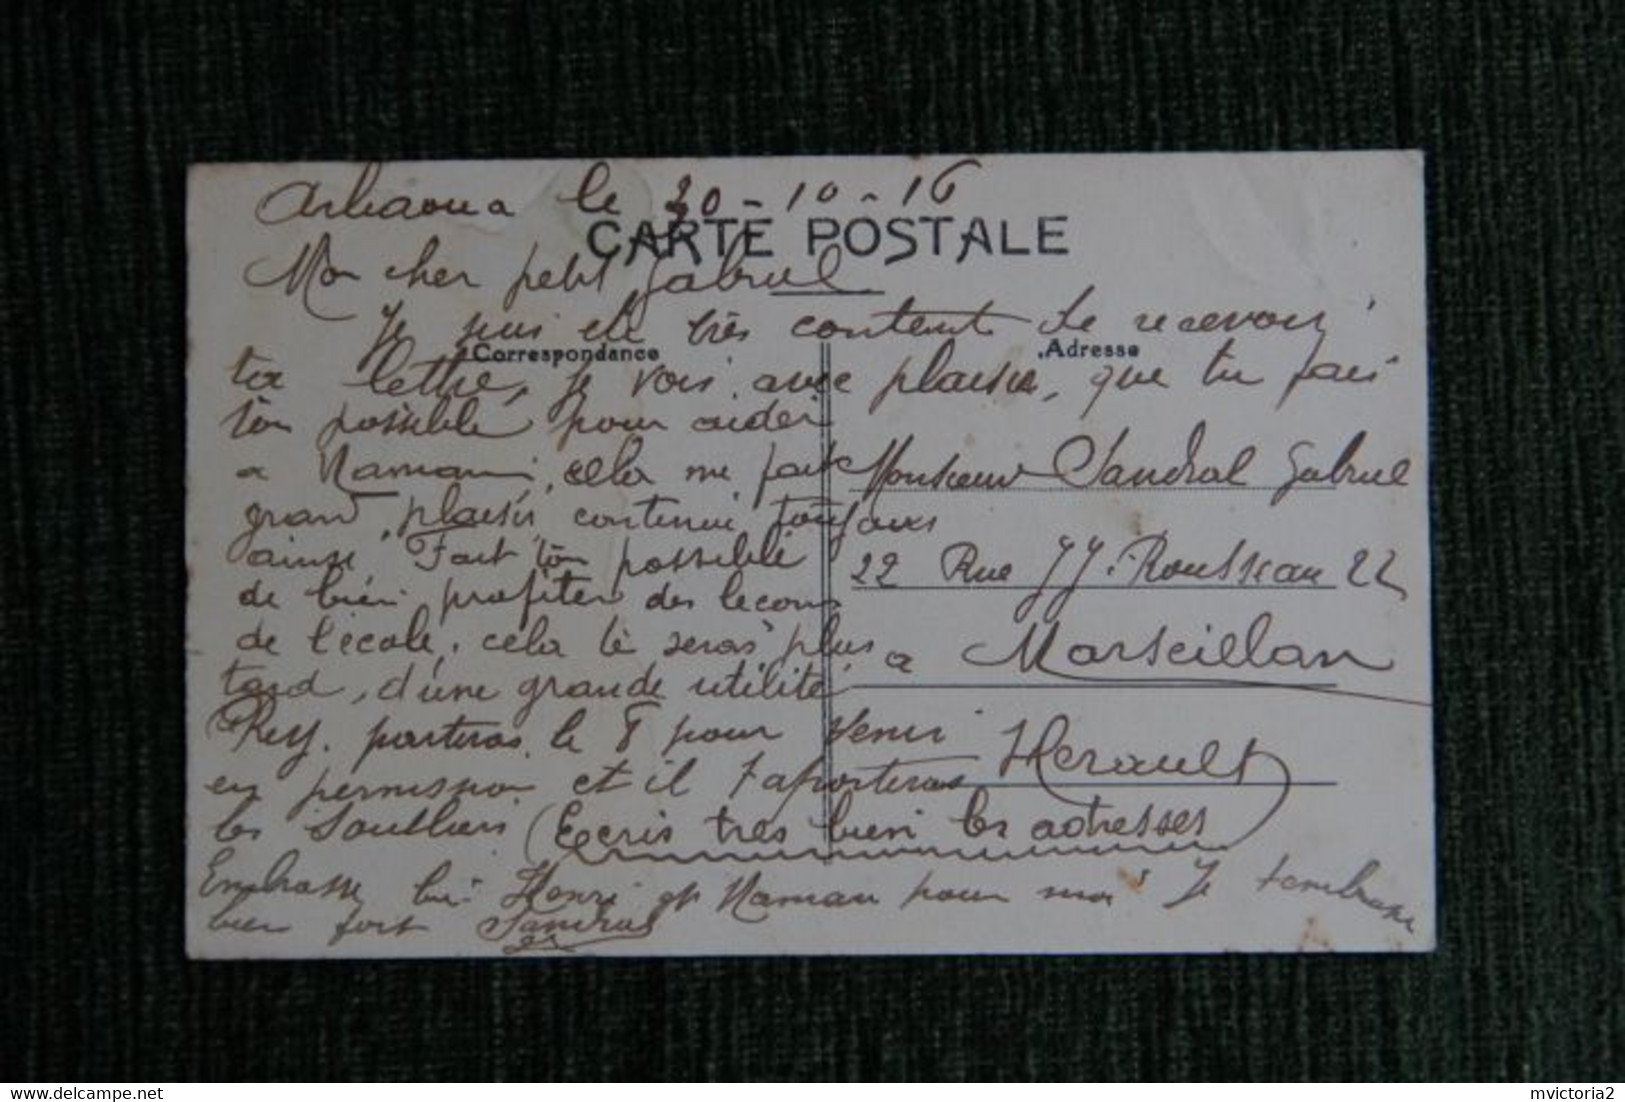 le 30-10-16
CARTE POSTALE
Mon cher petit Gabriel
Je suis été très content de recevoir
Correspondance
Adresse
ta lettre, je vois avec plaisir, que tu fais
ton possible pour aider
a Maman, cela me fait
grand plaisir, continue toujours
ainsi. Fait ton possible
de bien profiter des lecons
de l'école, cela te seras plus
tard, d'une grande utilité
Rey. parteras le 8 pour venir
en permission et il taporteras
les Soulliers (Ecris très bien les adresses
Embrasse bien Henri et Maman pour moi Je tembrasse
bien fort Sandral
Monsieur Sandral Gabriel
22 Rue JJ. Rousseau 22
a Marseillan
Herault
delcampe.net
mvictoria2